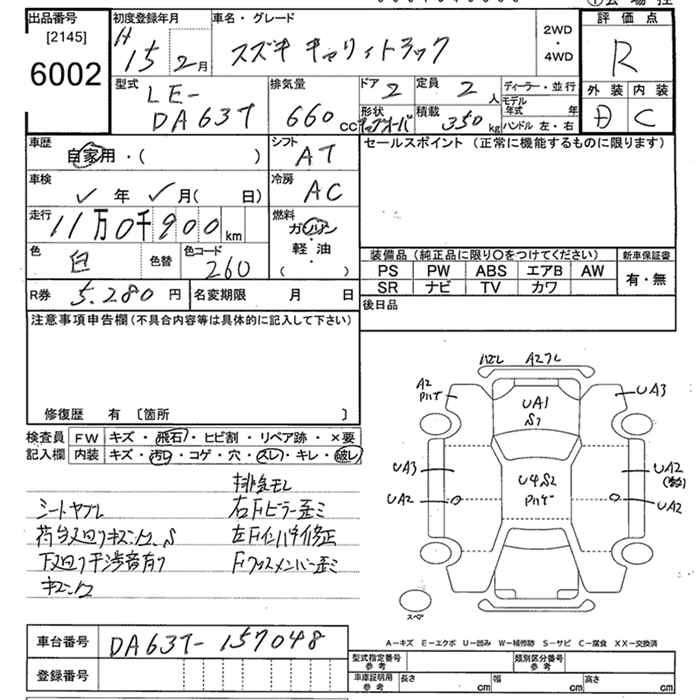 出品番号
[2145]
6002
初度登録年月
H 15 2月
車名・グレード
スズキ キャリィトラック
2WD
・
4WD
評価点
R
外装 内装
D C
型式
LE-
DA63T
排気量
660 cc
ドア 2
定員 2人
形状
積載 350 kg
ディーラー・並行
モデル年式 年
ハンドル 左・右
車歴
自家用・( )
シフト
AT
車検
年 月( 日)
冷房
AC
走行
11万0千900 km
燃料
ガソリン
・
軽・油
( )
色
白
色替
色コード
260
R券 5.280 円
名変期限 月 日
セールスポイント (正常に機能するものに限ります)
装備品 (純正品に限り〇をつけてください)
新車保証書
PS PW ABS エアB AW
SR ナビ TV カワ
有・無
後日品
注意事項申告欄 (不具合内容等は具体的に記入して下さい)
修復歴 有 〔箇所 〕
検査員 FW キズ・飛石・ヒビ割・リペア跡・×要
記入欄 内装 キズ・汚レ・コゲ・穴・スレ・キレ・破レ
排気モレ
シートヤブレ
右Fピラー歪ミ
左Fインパネ修正
下廻り干渉音有り
Fクロスメンバー歪ミ
A2
A2
UA3
UA1
S1
UA3
U4S2
UA2
UA2
UA2
スペア
A-キズ E-エクボ U-凹み W-補修跡 S-サビ C-腐食 XX-交換済
車台番号 DA63T-157048
登録番号
型式指定番号
参考
類別区分番号
参考
車庫証明用
参考
長さ cm 幅 cm 高さ cm